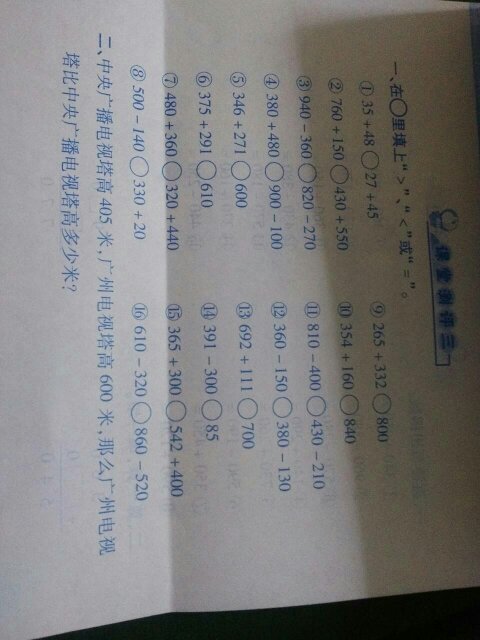 课堂测评三
一、在○里填上“>”、“<”或“=”。
①35+48○27+45 ⑨265+332○800
②760+150○430+550 ⑩354+160○840
③940-360○820-270 ⑪810-400○430-210
④380+480○900-100 ⑫360-150○380-130
⑤346+271○600 ⑬692+111○700
⑥375+291○610 ⑭391-300○85
⑦480+360○320+440 ⑮365+300○542+400
⑧500-140○330+20 ⑯610-320○860-520
二、中央广播电视塔高405米,广州电视塔高600米,那么广州电视
塔比中央广播电视塔高多少米?